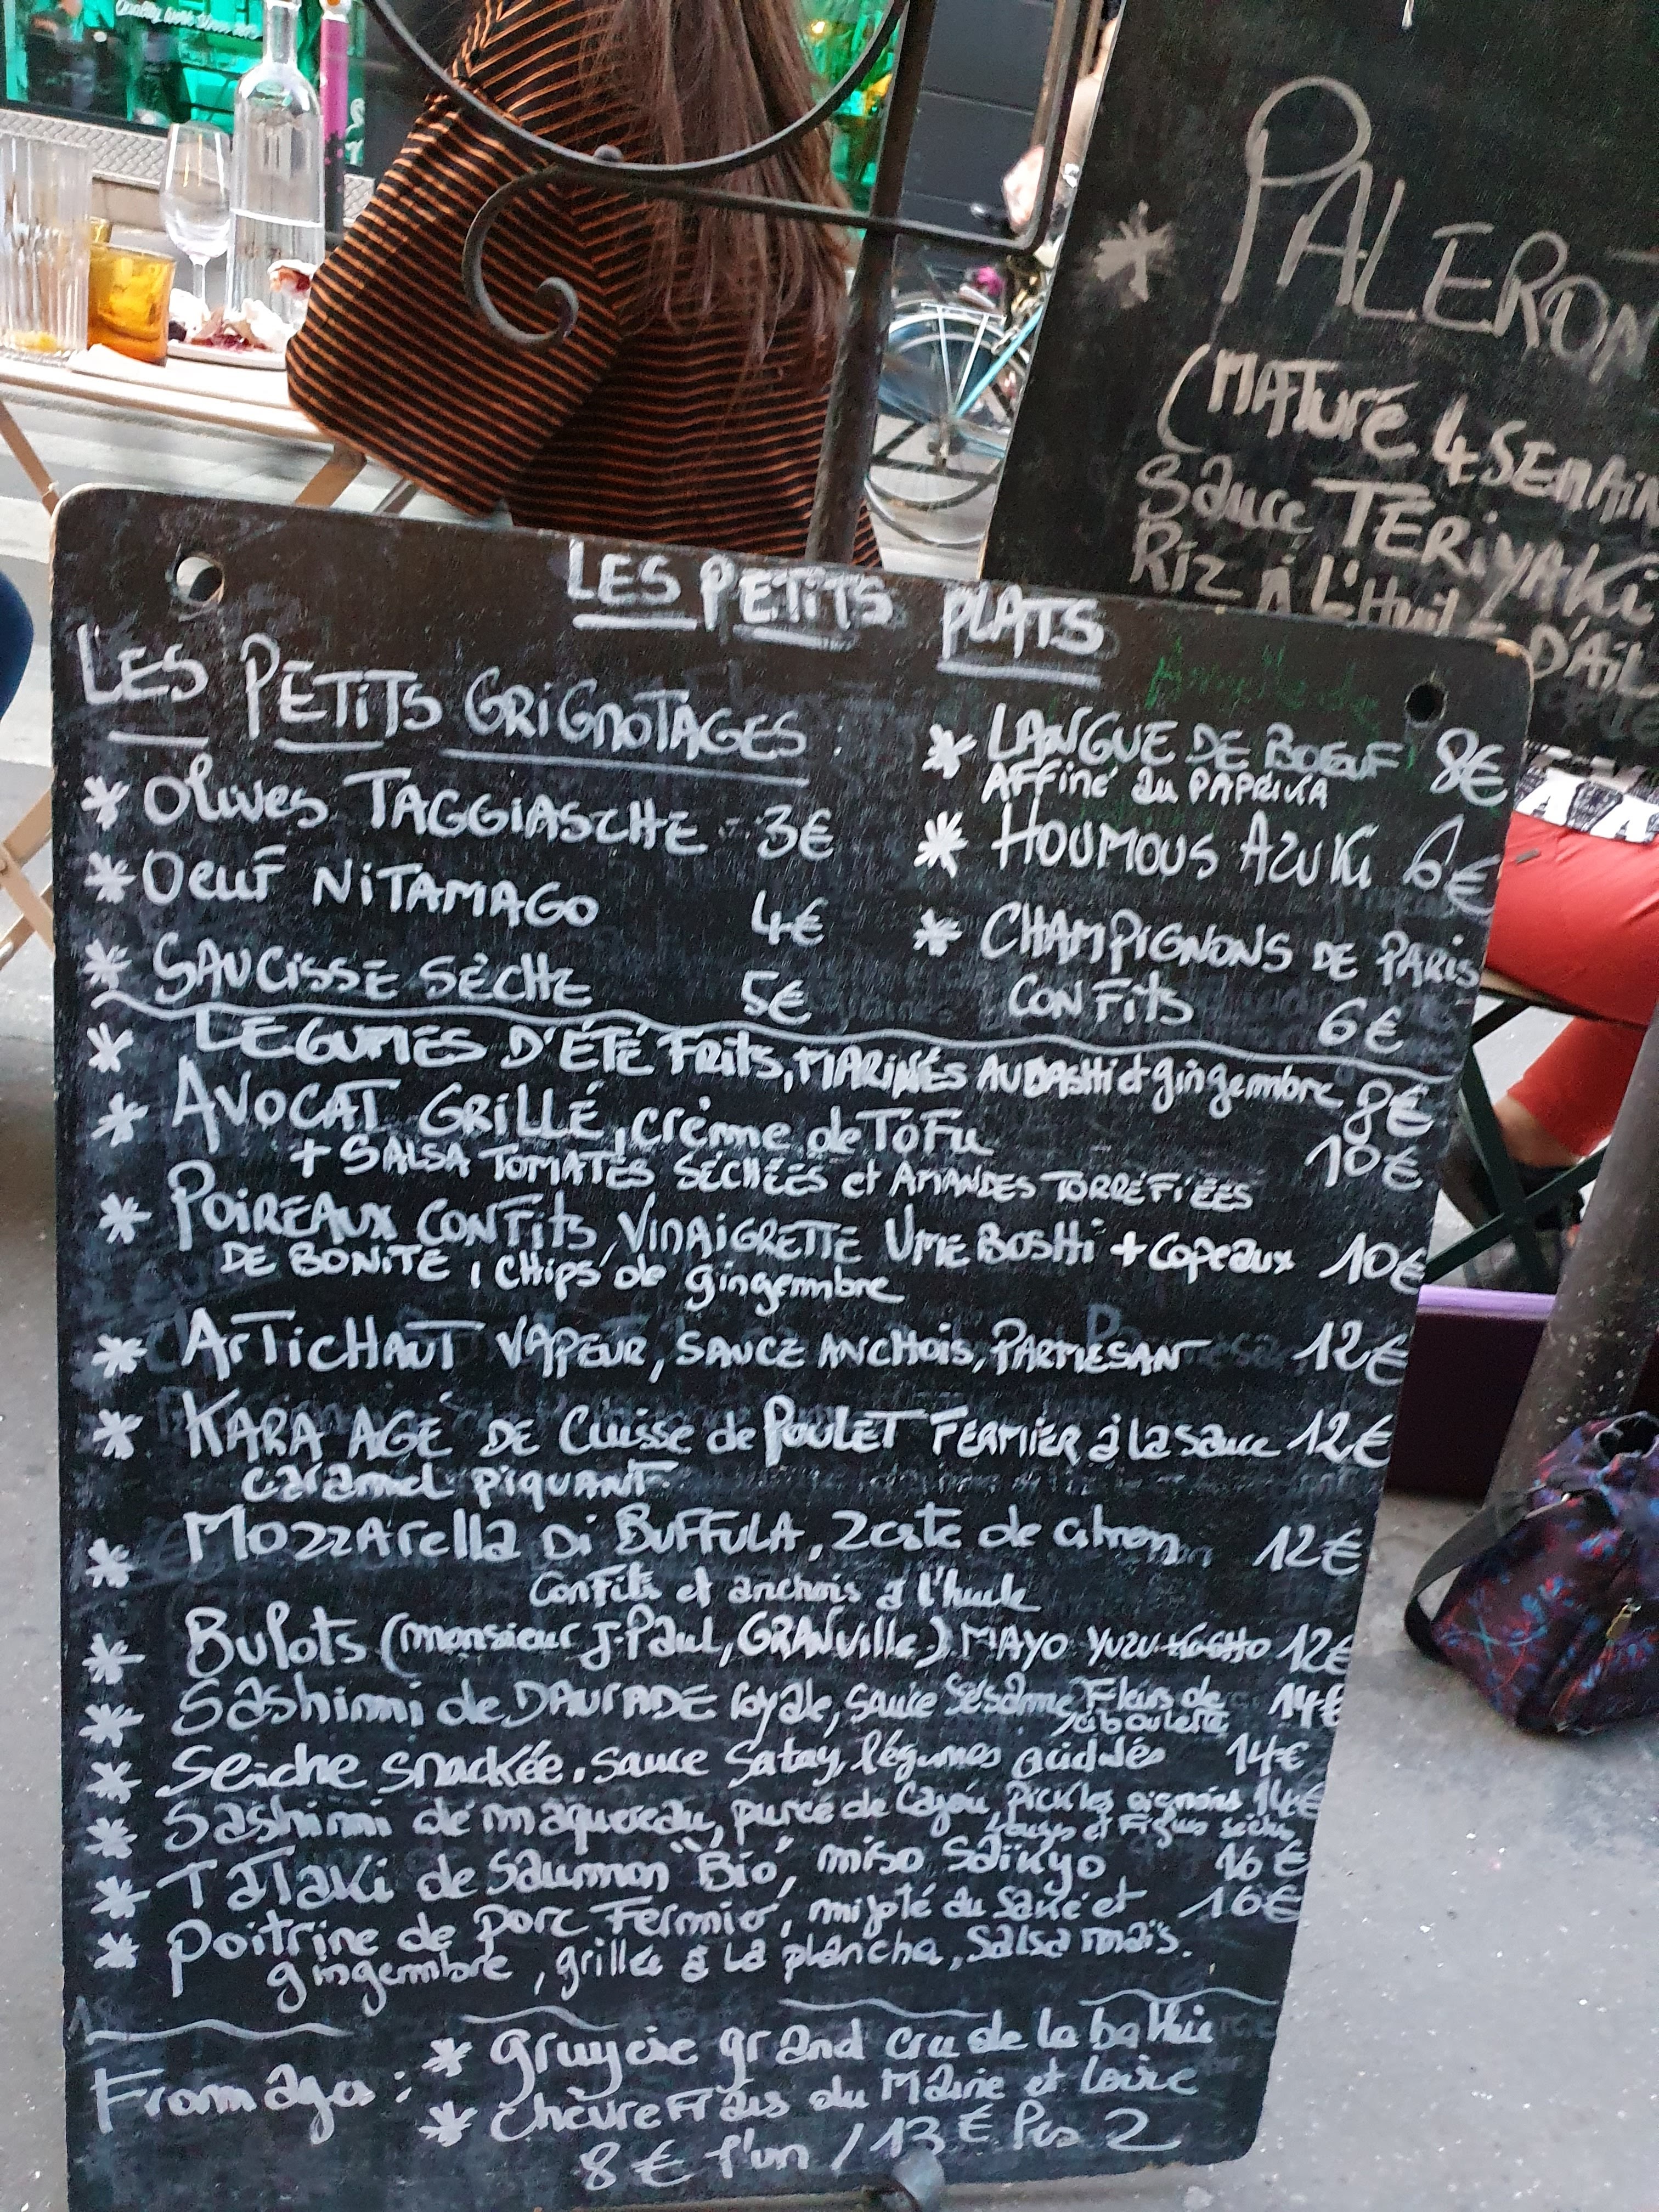 Quality
PALERON
(MATURÉ 4 SEMAIN
Sauce TERIYAKI
RIZ À L'HUILE D'AIL
LES PETITS PLATS
LES PETITS GRIGNOTAGES
* OLIVES TAGGIASCHE 3€
* OEUF NITAMAGO 4€
* SAUCISSE SÈCHE 5€
* LANGUE DE BOEUF 8€
AFFINÉ au PAPRIKA
* HOUMOUS AZUKI 6€
* CHAMPIGNONS DE PARIS
CONFITS 6€
* LÉGUMES D'ÉTÉ FRITS, MARINÉS AU DASHI et gingembre 8€
* AVOCAT GRILLÉ, crème de TOFU 10€
+ SALSA TOMATES SÉCHÉES et AMANDES TORRÉFIÉES
* POIREAUX CONFITS, VINAIGRETTE UMEBOSHI + copeaux 10€
DE BONITE, CHIPS de gingembre
* ARTICHAUT VAPEUR, SAUCE ANCHOIS, PARMESAN 12€
* KARA AGÉ DE Cuisse de POULET FERMIER à la sauce 12€
caramel PIQUANT
* MOZZArella Di BUFFULA, Zeste de citron 12€
Confits et anchois à l'huile
* Bulots (monsieur J-Paul, GRANville) MAYO YUZU KOSHO 12€
* Sashimi de DAURADE Royale, sauce Sésame, Fleurs de 14€
ciboulette
* Seiche snackée, sauce Satay, légumes acidulés 14€
* Sashimi de maquereau, purée de Cajou, Pickles oignons 14€
rouges et Figues sèches
* TATAKI de Saumon "Bio", miso Saïkyo 16€
* Poitrine de porc Fermier, mijoté au Saké et 16€
gingembre, grillée à la plancha, Salsa maïs.
Fromages : * gruyère grand cru de la
* chèvre Frais du Maine et Loire
8€ l'un / 13€ les 2